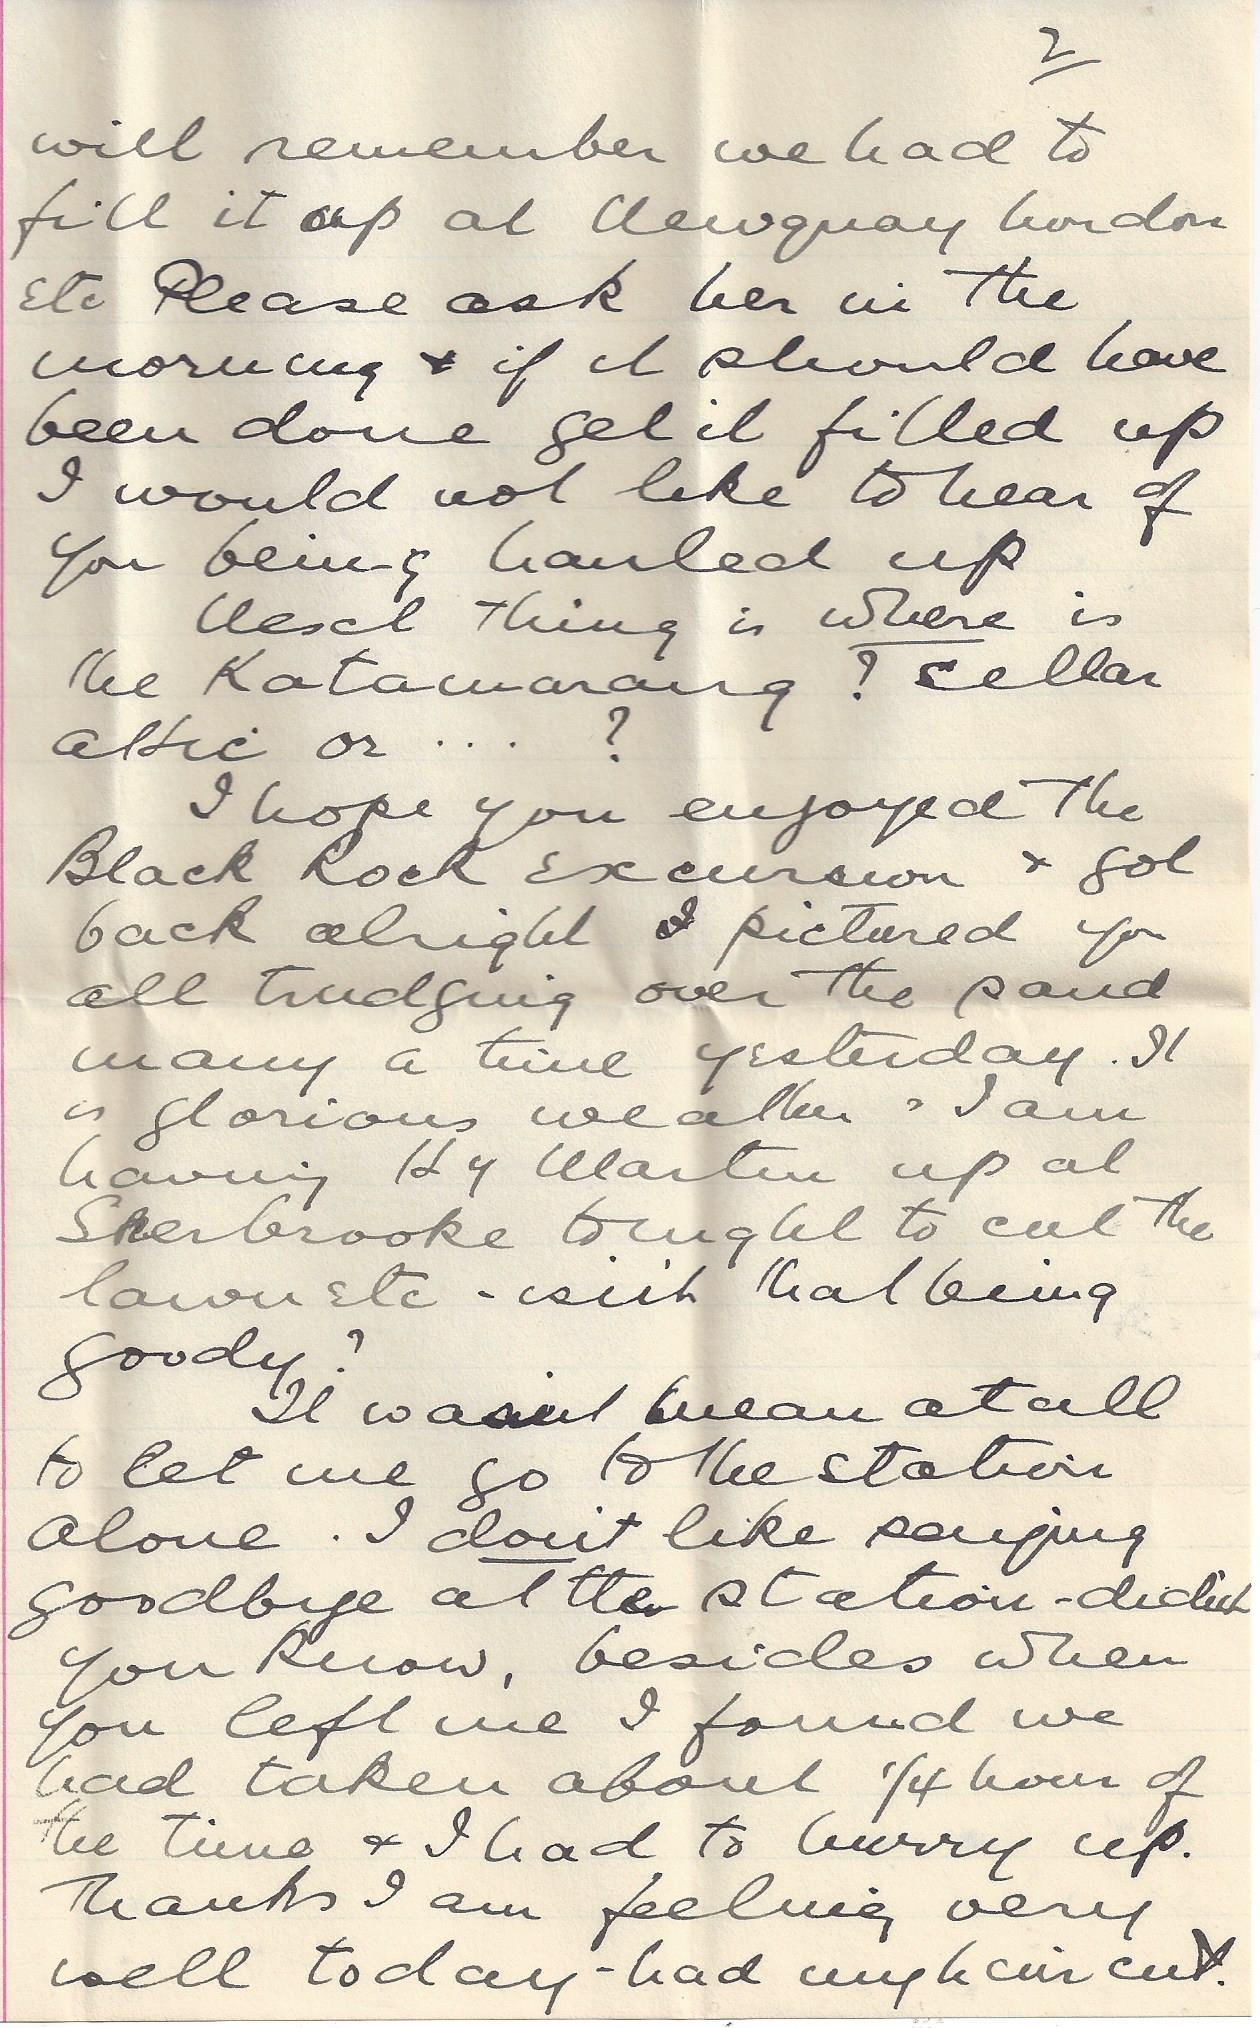 2
will remember we had to
fill it up at Newquay London
etc Please ask her in the
morning & if it should have
been done get it filled up
I would not like to hear of
you being hauled up
Next thing is where is
the Katamarang ? cellar
attic or ... ?
I hope you enjoyed the
Black Rock excursion & got
back alright I pictured you
all trudging over the sand
many a time yesterday. It
is glorious weather & I am
having Hy Martin up at
Sherbrooke tonight to cut the
lawn etc - isnt that being
goody?
It wasnt mean at all
to let me go to the station
alone. I dont like saying
goodbye at the station - didnt
you know, besides when
you left me I found we
had taken about 1/4 hour of
the time & I had to hurry up.
Thanks I am feeling very
well today - had my hair cut.